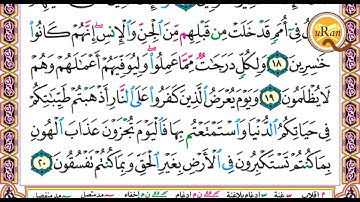 لُ فِىٓ أُمَمٍ قَدْ خَلَتْ مِن قَبْلِهِم مِّنَ ٱلْجِنِّ وَٱلْإِنسِ ۖ إِنَّهُمْ كَانُوا۟
خَٰسِرِينَ ١٨ وَلِكُلٍّ دَرَجَٰتٌ مِّمَّا عَمِلُوا۟ ۖ وَلِيُوَفِّيَهُمْ أَعْمَٰلَهُمْ وَهُمْ
لَا يُظْلَمُونَ ١٩ وَيَوْمَ يُعْرَضُ ٱلَّذِينَ كَفَرُوا۟ عَلَى ٱلنَّارِ أَذْهَبْتُمْ طَيِّبَٰتِكُمْ
فِى حَيَاتِكُمُ ٱلدُّنْيَا وَٱسْتَمْتَعْتُم بِهَا فَٱلْيَوْمَ تُجْزَوْنَ عَذَابَ ٱلْهُونِ
بِمَا كُنتُمْ تَسْتَكْبِرُونَ فِى ٱلْأَرْضِ بِغَيْرِ ٱلْحَقِّ وَبِمَا كُنتُمْ تَفْسُقُونَ ٢٠
uRan